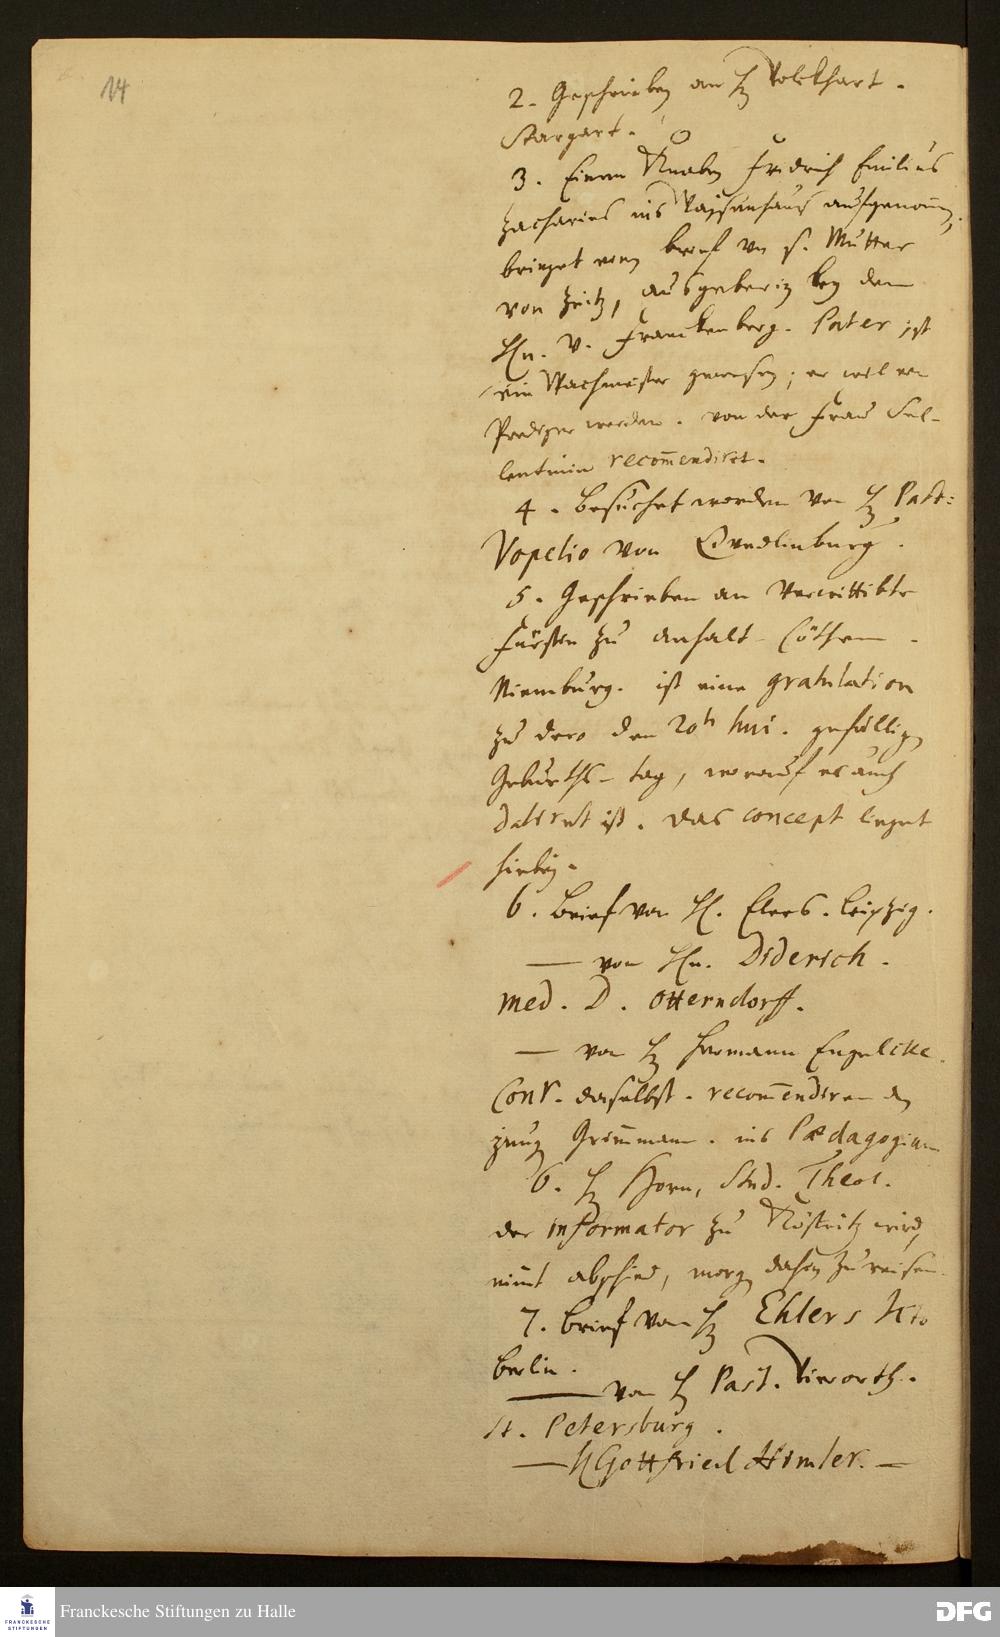 14
2. Geschrieben an H. Volckhart.
Stargart.
3. Einen Knaben Fridrich Emilius
Zacharias ins Waysenhaus aufgenom̄en,
bringet einen brief von s. Mutter
von Zeitz, ausgeberin bey dem
Hn. v. Franckenberg. Pater ist
ein Wachmeister gewesen; er wil ein
Prediger werden. von der Frau Sel-
lentinin recom̄endiret.
4. besuchet worden von H. Past:
Vopelio von Qvedlinburg.
5. Geschrieben an Verwittibte
Fürstin zu Anhalt-Cöthen.
Nienburg. ist eine gratulation
zu dero den 20t huj. gefälligen
Geburths-tag, worauf es auch
datiret ist. das concept lieget
hiebey.
6. brief von H. Elers. Leipzig.
— von Hn. Diderich.
med. D. Otterndorff.
— von H. Hermann Engelcke.
ConR. daselbst. recom̄endiren den
jung Grim̄mann. ins Pædagogium
6. H. Horn, Stud. Theol.
der informator zu Köstritz wird,
nim̄t abschied, morgen dahin zu reisen.
7. brief von H. Ehlers
berlin.
— von H. Past. Vierorth.
St. Petersburg.
— H Gottfried Himler. —
Franckesche Stiftungen zu Halle
FRANCKESCHE
STIFTUNGEN
DFG